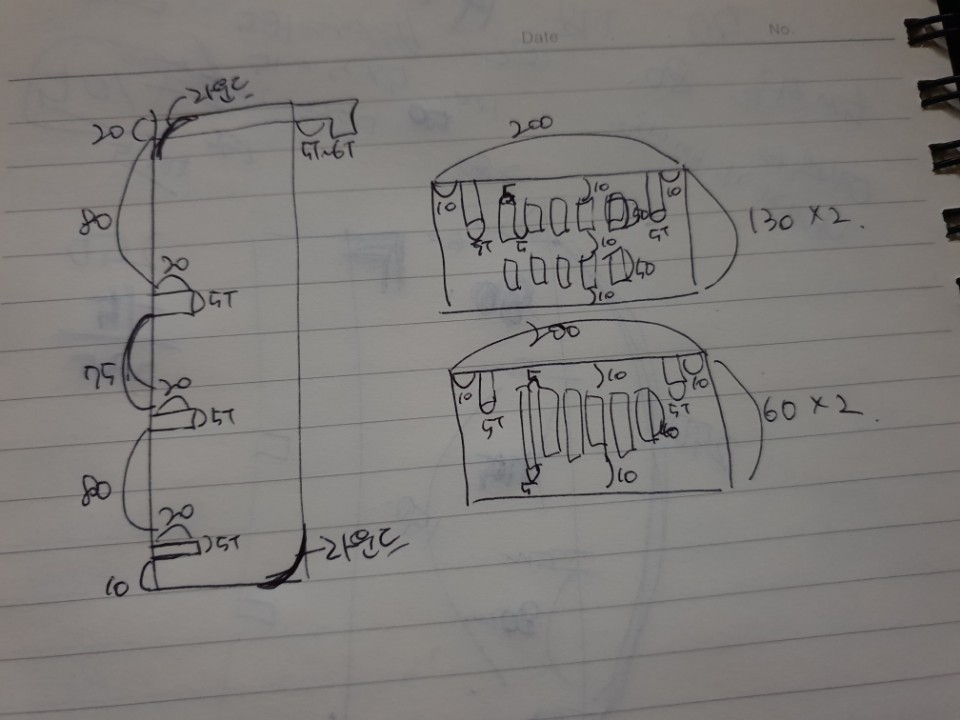 Date
No.
라운드
20
5T~6T
80
20
5T
75
20
5T
80
20
5T
10
라운드
200
10
5T
5
5
10
30
5T
10
10
40
10
130 × 2.
200
10
5T
5
5
10
40
5T
10
10
60 × 2.